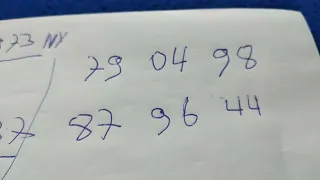 73 NY
79 04 98
37 87 96 44